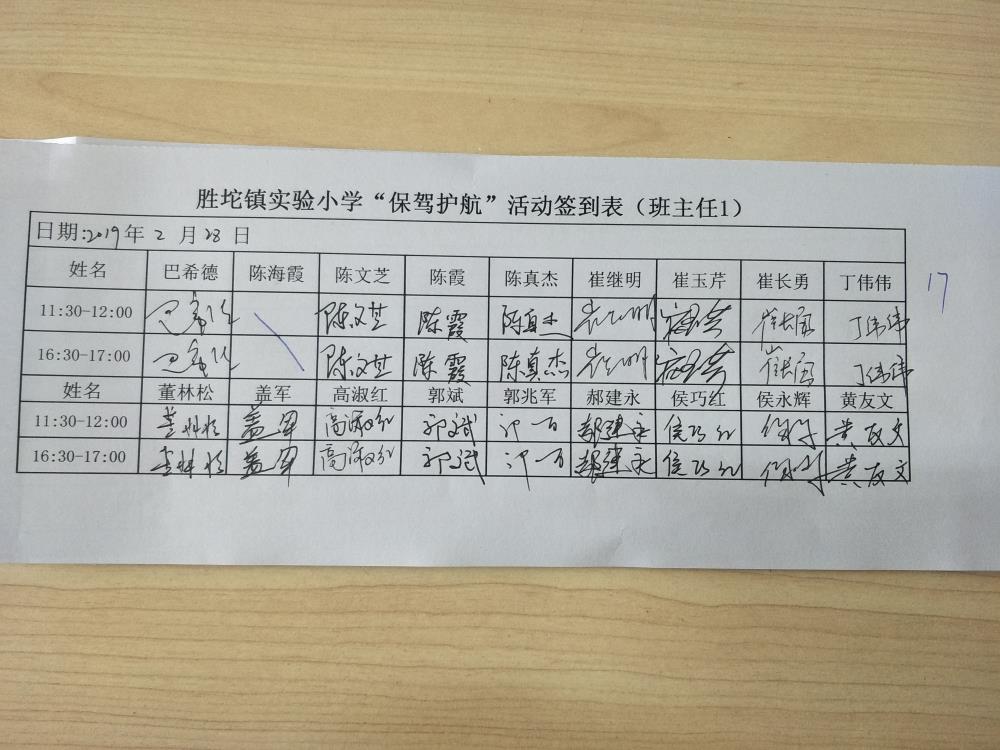 胜坨镇实验小学“保驾护航”活动签到表（班主任1）
日期:2019年 2 月 28 日
姓名 巴希德 陈海霞 陈文芝 陈霞 陈真杰 崔继明 崔玉芹 崔长勇 丁伟伟
17
11:30-12:00 巴希德 陈文芝 陈霞 陈真杰 崔继明 崔玉芹 崔长勇 丁伟伟
16:30-17:00 巴希德 陈文芝 陈霞 陈真杰 崔继明 崔玉芹 崔长勇 丁伟伟
姓名 董林松 盖军 高淑红 郭斌 郭兆军 郝建永 侯巧红 侯永辉 黄友文
11:30-12:00 董林松 盖军 高淑红 郭斌 郝建永 侯巧红 黄友文
16:30-17:00 董林松 盖军 高淑红 郭斌 郝建永 侯巧红 黄友文